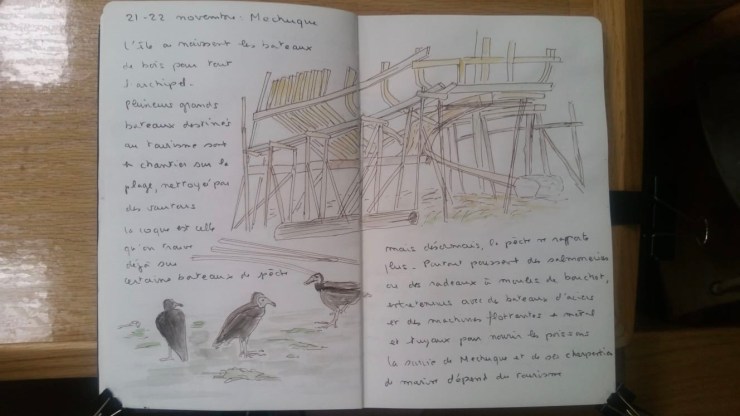 21-22 novembre. Mechuque
L'île où naissent les bateaux
de bois pour tout
l'archipel.
Plusieurs grands
bateaux destinés
au tourisme sont
en chantier sur la
plage, nettoyé par
des vautours
la coque est celle
qu'on trouve
déjà sur
certains bateaux de pêche
mais désormais, la pêche ne rapporte
plus. Partout poussent des salmoneries
ou des radeaux à moules de bouchot,
entretenus avec de bateaux d'aciers
et des machines flottantes à métal
et tuyaux pour nourrir les poissons
la survie de Mechuque et de ses charpentiers
de marine dépend du tourisme